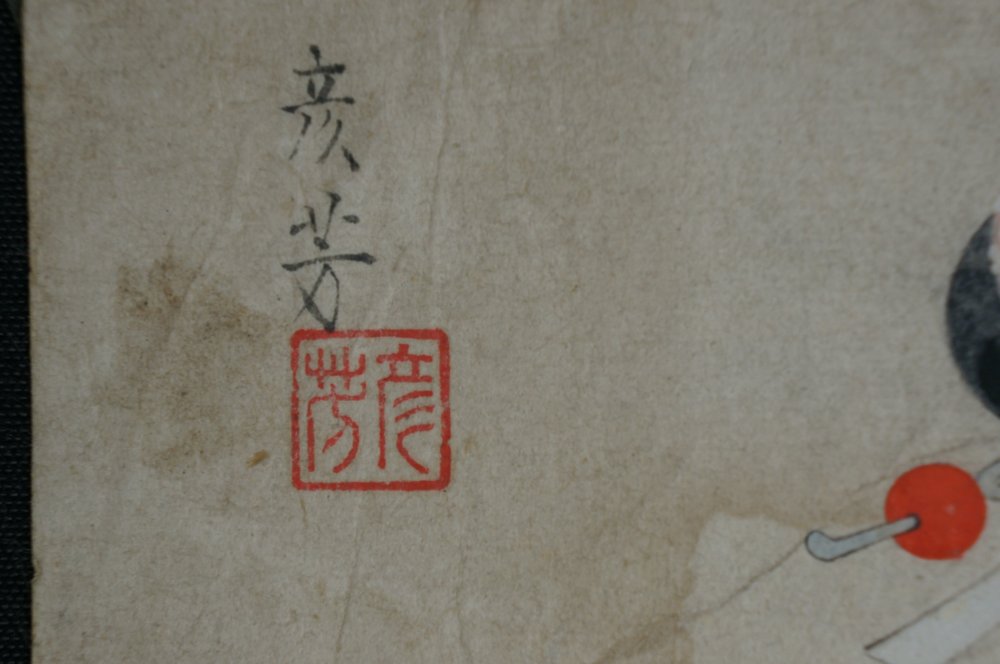 彦芳
彦芳